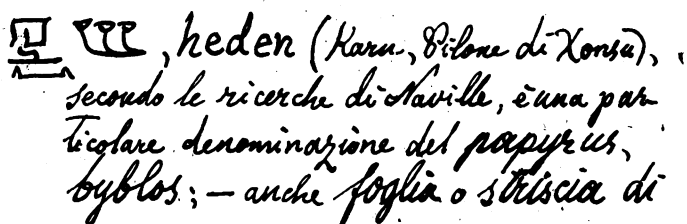 , heden (Karn., Pilone di Xonsu),
secondo le ricerche di Naville, è una par-
ticolare denominazione del papyrus,
byblos; — anche foglia o striscia di